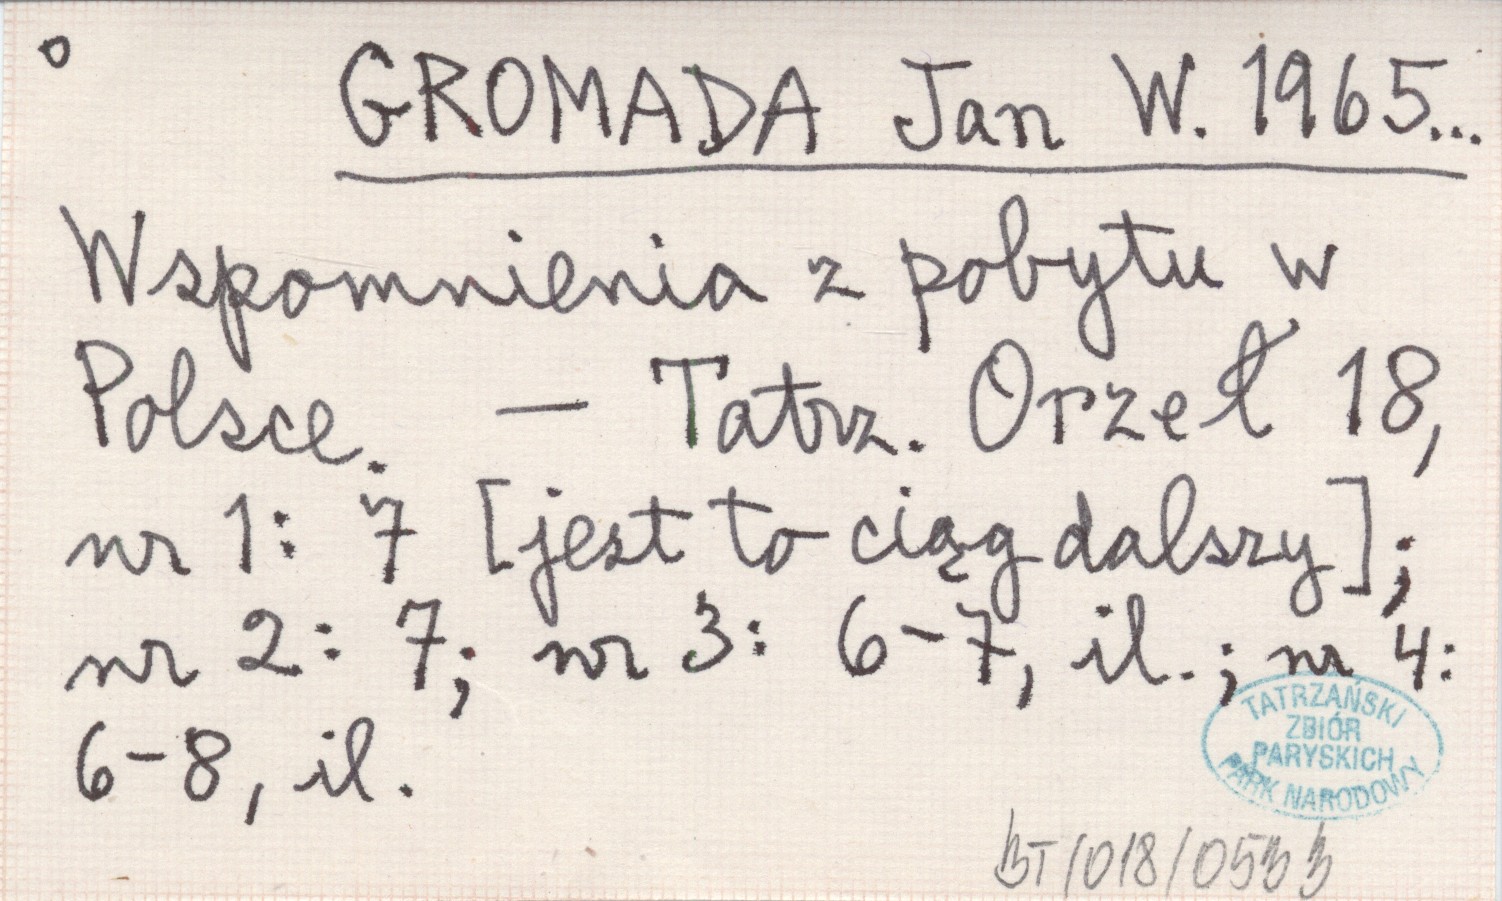 o
GROMADA Jan W. 1965...
Wspomnienia z pobytu w
Polsce. — Tatrz. Orzeł 18,
nr 1: 7 [jest to ciąg dalszy];
nr 2: 7; nr 3: 6-7, il.; nr 4:
6-8, il.
TATRZAŃSKI
ZBIÓR
PARYSKICH
PARK NARODOWY
BT/018/0533